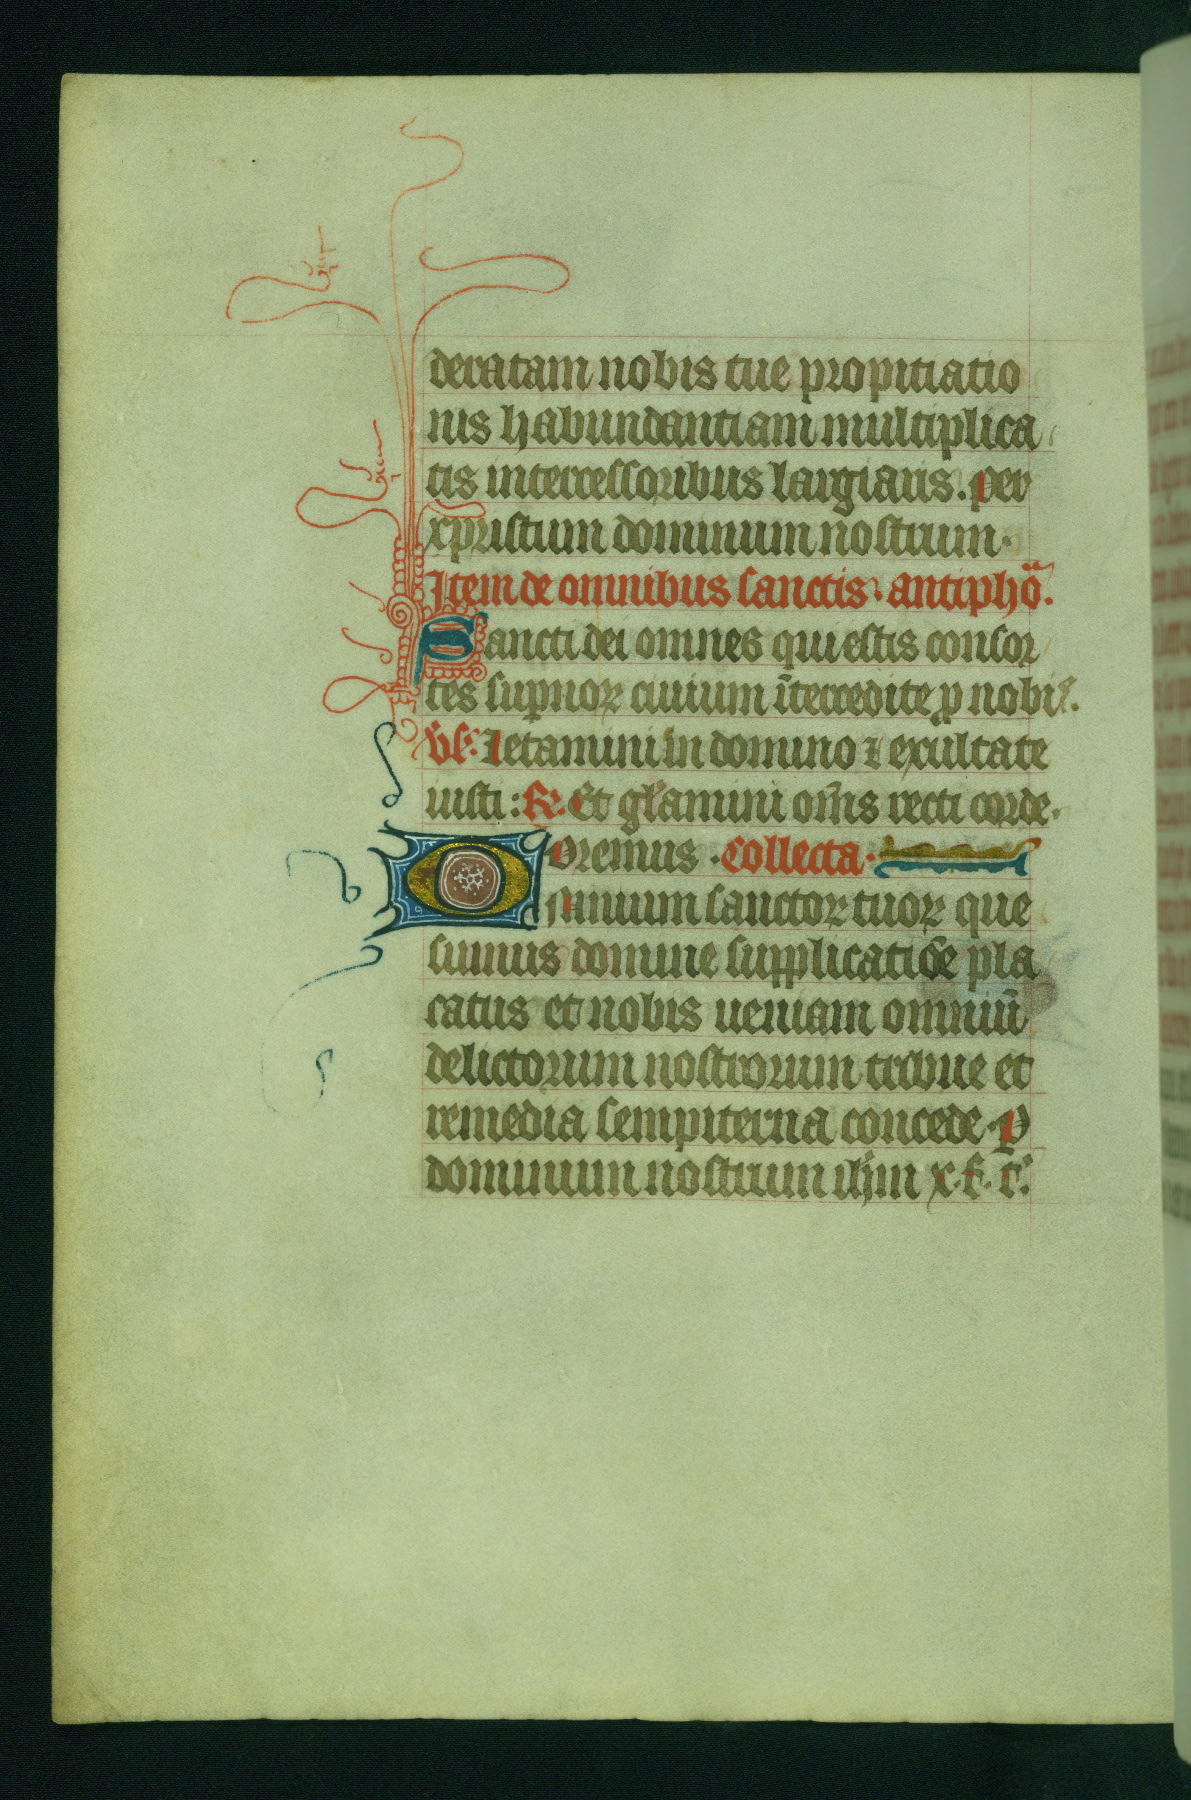 deratam nobis tue propitiatio
nis habundantiam multiplica
tis intercessoribus largiaris. Per
xpristum dominum nostrum.
Item de omnibus sanctis. antiphõ.
Sancti dei omnes qui estis consor
tes supnoꝝ ciuium ĩtercedite ꝓ nobis.
vs̃. Letamini in domino ⁊ exultate
iusti: R̃. Et gl̃amini om̃s recti corde.
Oremus. Collecta.
Omnium sanctoꝝ tuoꝝ que
sumus domine supplicatiõe pla
catus et nobis ueniam omniũ
delictorum nostrorum tribue et
remedia sempiterna concede. P
dominum nostrum ihm x. f. t.